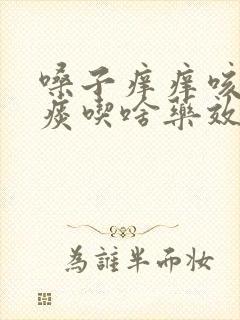 嗓子痒痒咳
痰喫啥藥效
為誰半而妆